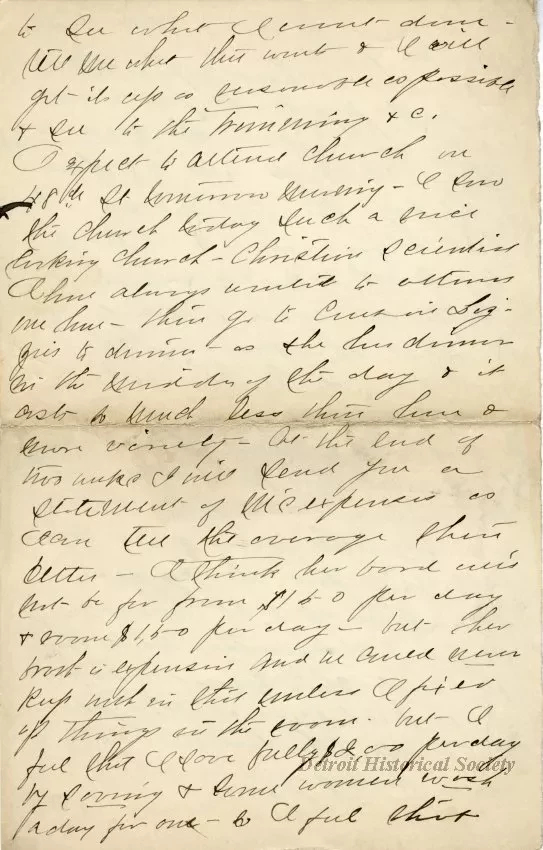 to see what I cant done -
tell me what this want & I will
get its up as reasonable as possible
& see to the Trimming & c.
I expect to attend church on
48th St tomorrow morning - I saw
the church today such a nice
looking church - Christian Scientist
I have always wanted to attend
one here - then go to Cousin Liz-
zies to dinner - as she has dinner
in the middle of the day & it
costs so much less than here &
more variety - At the end of
two weeks I will send you a
statement of expenses as
I can tell the average then
better - I think her board will
not be far from $1.50 per day
& room $1,50 per day - but her
is expensive and we could never
keep well on that unless I fixed
up things in the room. but - I
feel that I save fully $2.00 per day
by sewing & some women wash
a day for one - so I feel that
Detroit Historical Society